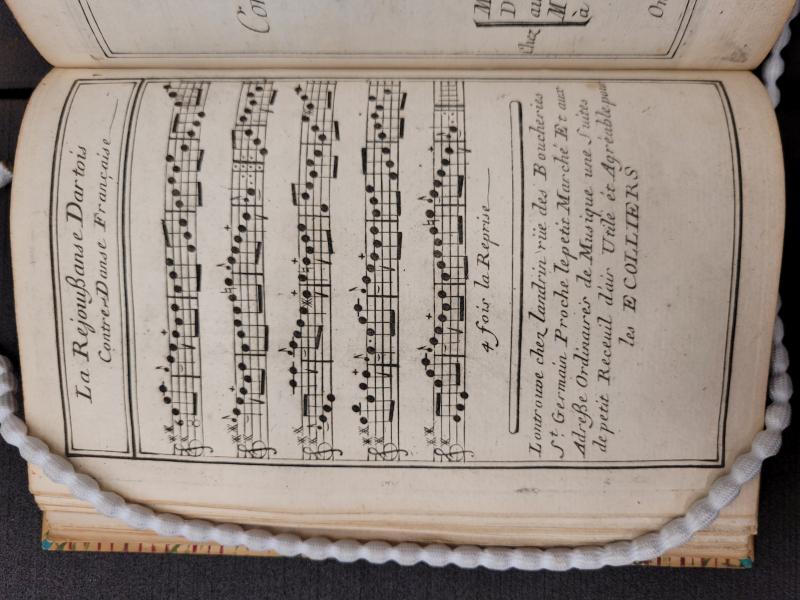 La Rejouẞanse Dartois
Contre-Danse Française
4 fois la Reprise
Lontrouve chez landrin rüe des Boucheries
St Germain Proche le petit Marché Et aux
Adreẞe Ordinaires de Musique une Suites
de petit Receuil d'air Utile et Agréable pour
les ECOLLIERS
Chez
au
M
à